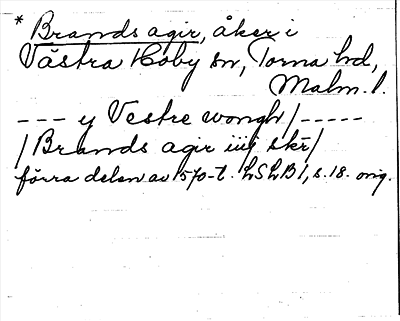 * Brands agir, åker i
Västra Hoby sn, Torna hd,
Malm. l.
--- y Vestre wongh/-----
/Brands agir iiij skr/
förra delen av 1570-t. LSLB 1, s. 18. orig.